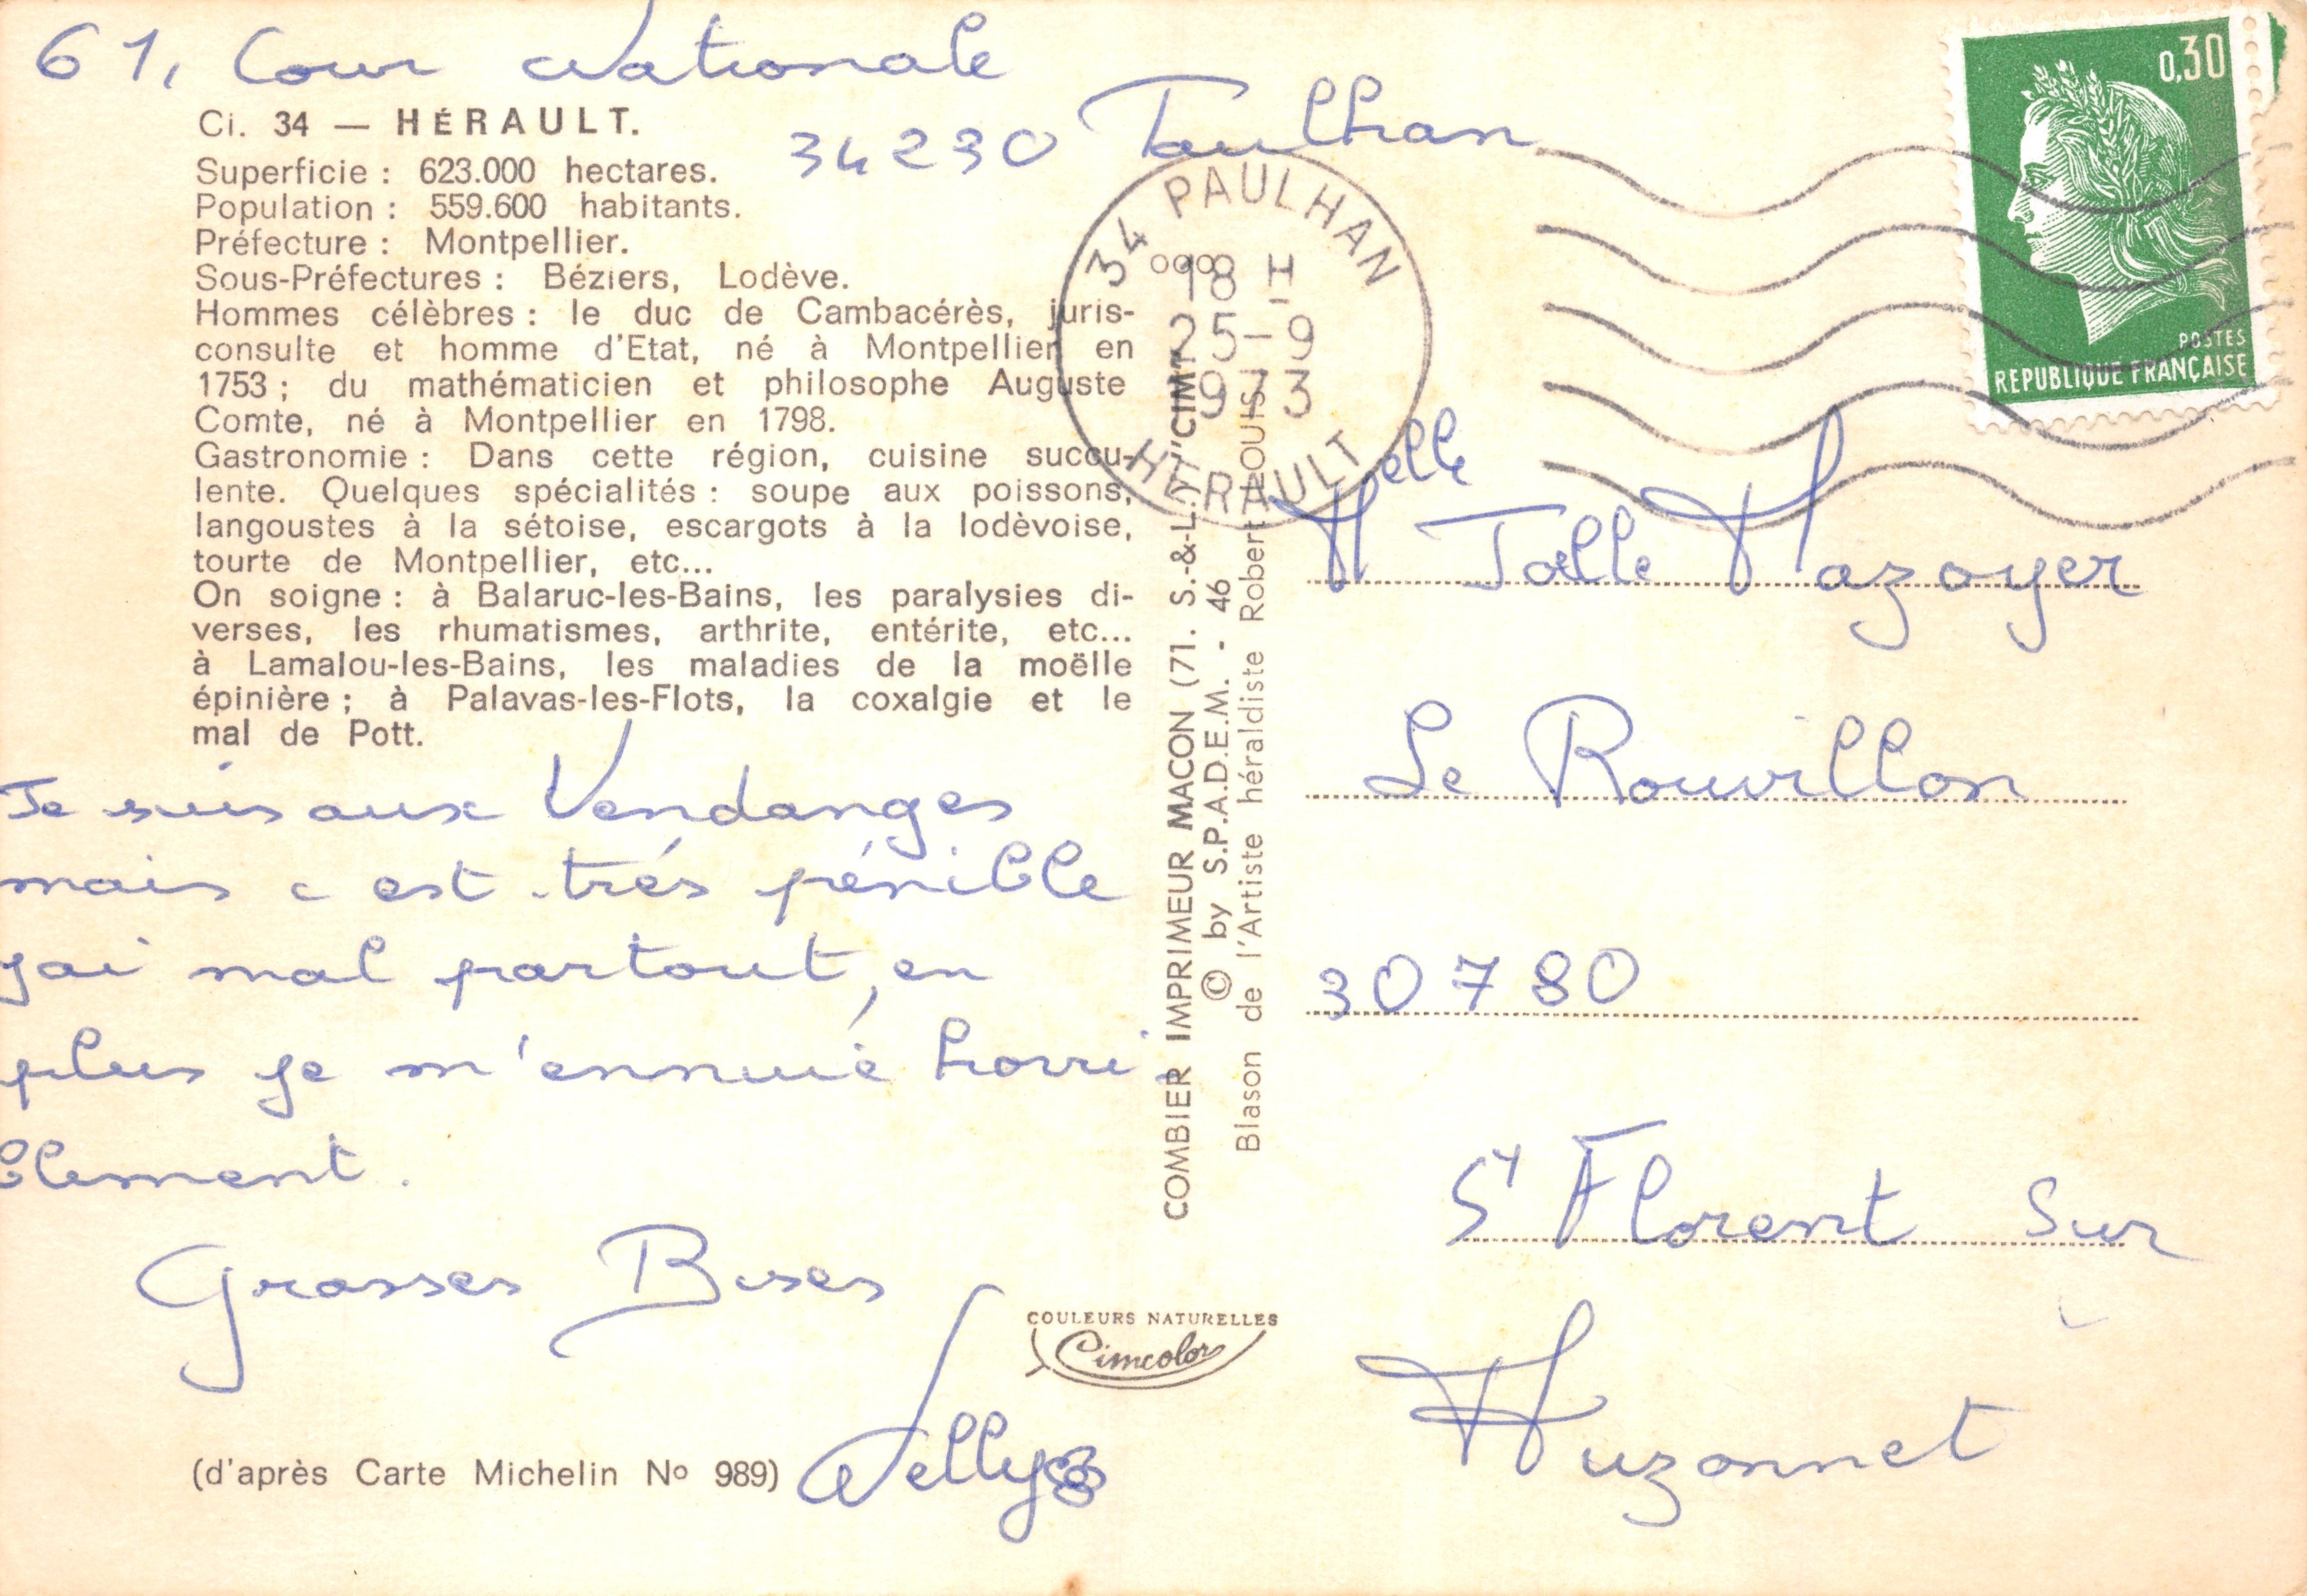 61, Cour Nationale
34230 Paulhan
Ci. 34 — HÉRAULT.
Superficie : 623.000 hectares.
Population : 559.600 habitants.
Préfecture : Montpellier.
Sous-Préfectures : Béziers, Lodève.
Hommes célèbres : le duc de Cambacérès, juris-
consulte et homme d'Etat, né à Montpellier en
1753 ; du mathématicien et philosophe Auguste
Comte, né à Montpellier en 1798.
Gastronomie : Dans cette région, cuisine succu-
lente. Quelques spécialités : soupe aux poissons,
langoustes à la sétoise, escargots à la lodèvoise,
tourte de Montpellier, etc...
On soigne : à Balaruc-les-Bains, les paralysies di-
verses, les rhumatismes, arthrite, entérite, etc...
à Lamalou-les-Bains, les maladies de la moëlle
épinière ; à Palavas-les-Flots, la coxalgie et le
mal de Pott.
Je suis aux Vendanges
mais c est très pénible
j'ai mal partout, en
plus je m'ennuie horri-
blement.
Grosses Bises
Nelly
(d'après Carte Michelin No 989)
COULEURS NATURELLES
Cimcolor
COMBIER IMPRIMEUR MACON (71. S.-&-L.) "CIM"
© by S.P.A.D.E.M. - 46
Blason de l'Artiste héraldiste Robert LOUIS
34 PAULHAN
18 H
25-9
1973
HERAULT
0,30
POSTES
REPUBLIQUE FRANÇAISE
Melle Joëlle Mazoyer
Le Rouvillon
30780
St Florent Sur
Auzonnet